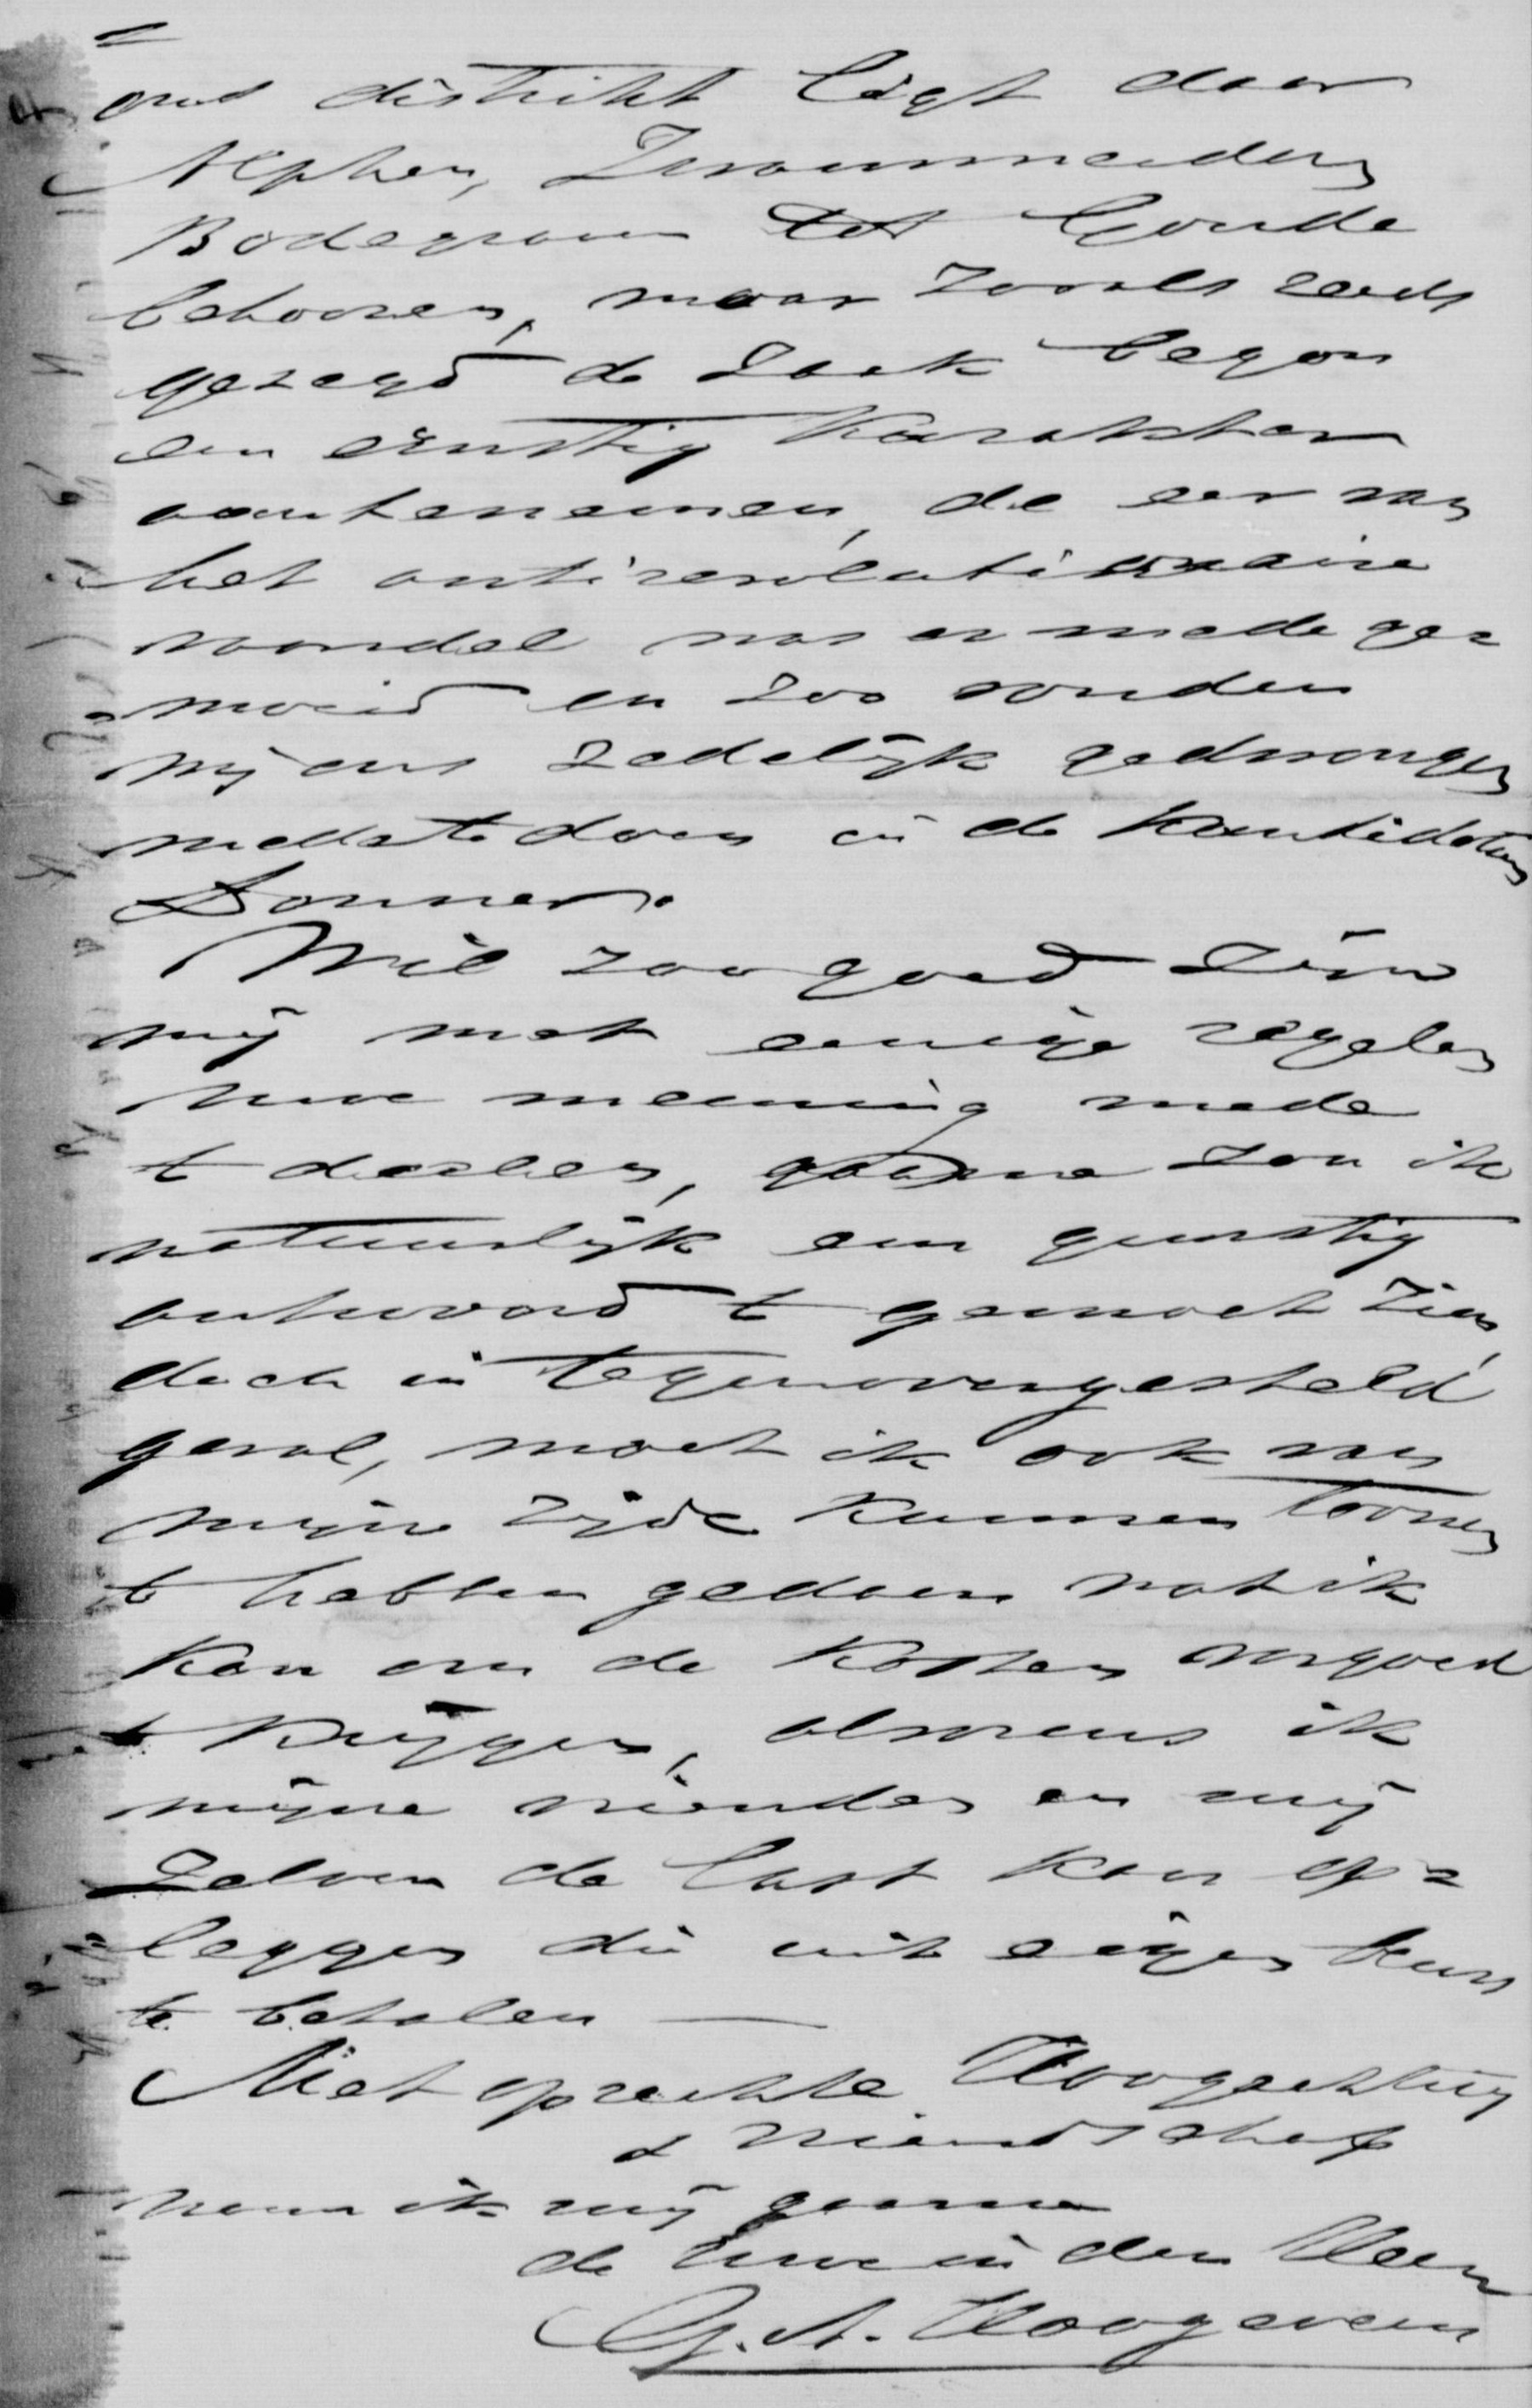 =
ons distrikt ligt daar
Alphen, Zwammerdam
Bodegraven tot Gouda
behooren, maar zooals reeds
gezegd de zaak begon
een ernstig karakter
aantenemen, de eer van
het antirevolutionaire
vaandel was er mede ge=
moeid en zoo vonden
wij ons zedelijk gedwongen
mede te doen in de kandidatuur
Donner.
Wil zoo goed zijn
mij met eenige regelen
uwe meening mede
te deelen, gaarne zou ik
natuurlijk een gunstig
antwoord te gemoet zien,
doch in tegenovergesteld
geval, moet ik ook van
mijne zijde kunnen toonen
te hebben gedaan wat ik
kan om de kosten vergoed
te krijgen, alvorens ik
mijne vrienden en mij
zelven de last kan op=
leggen die uit eigen beurs
te betalen —
Met oprechte Hoogachting
& vriendschap
noem ik mij gaarne
de Uwe in den Heer
G. A. Hoogeveen